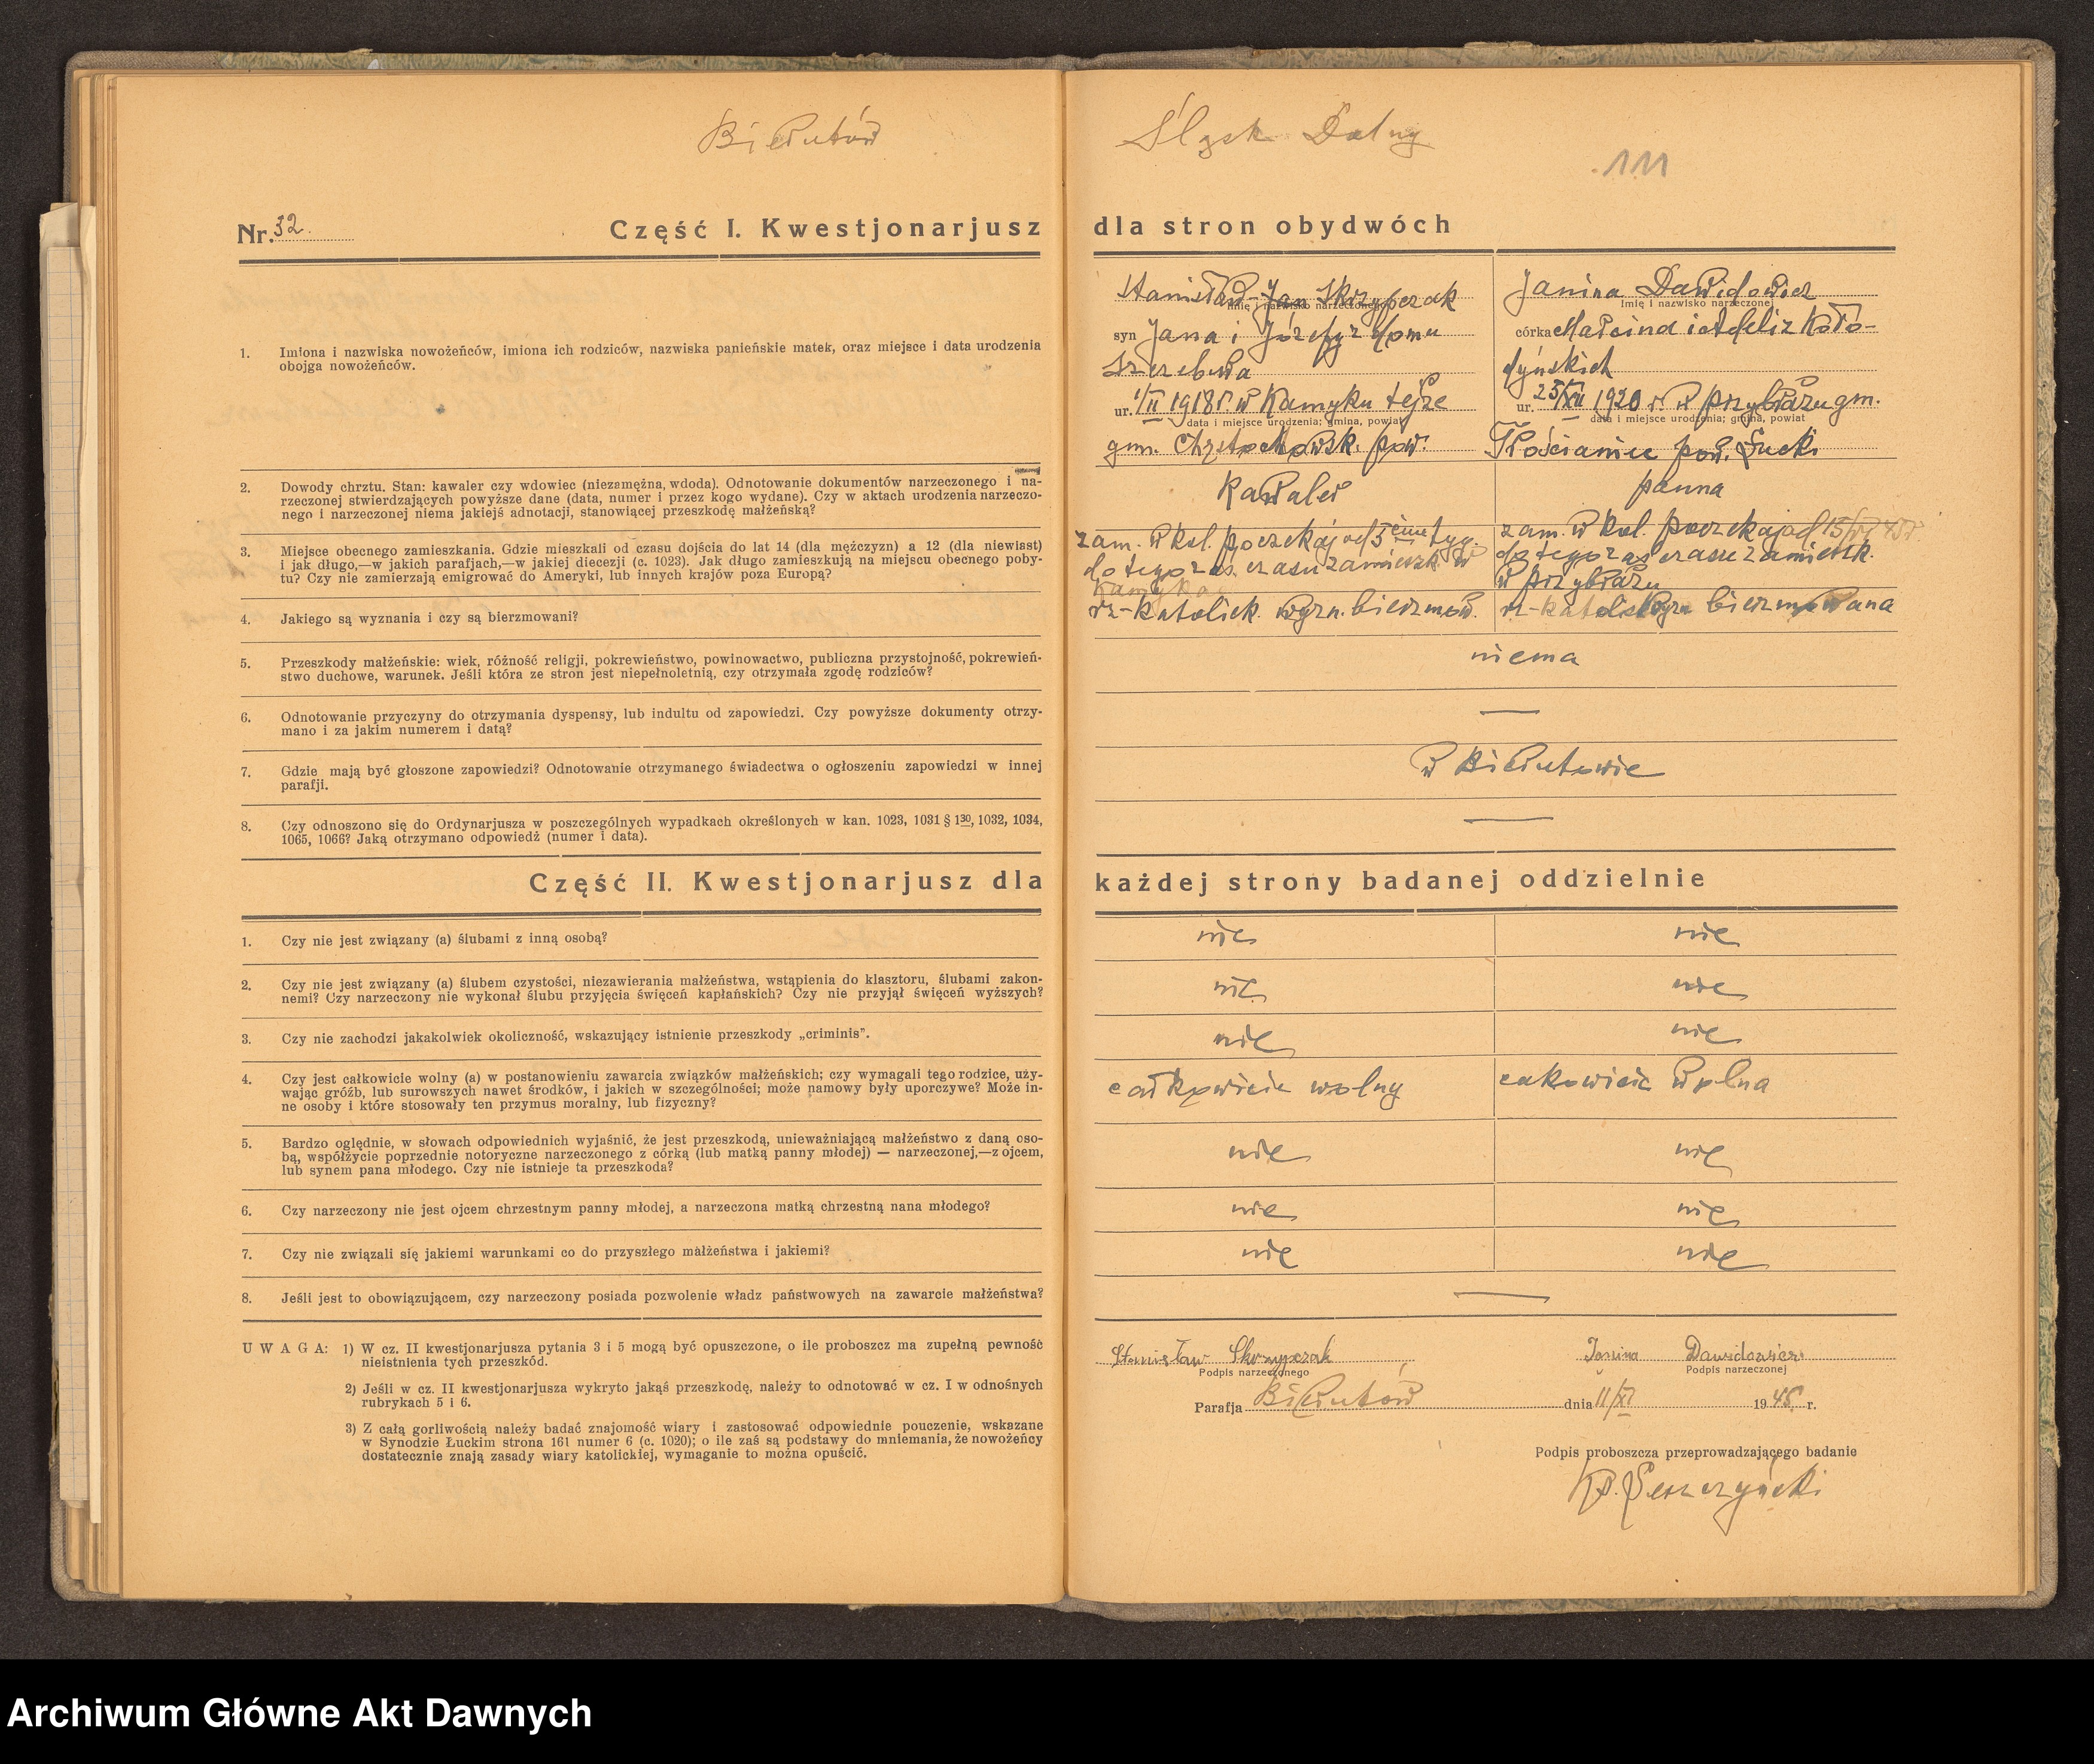 Bierutów
Śląsk Dolny
111
Nr. 32.
Część I. Kwestjonarjusz
dla stron obydwóch
1. Imiona i nazwiska nowożeńców, imiona ich rodziców, nazwiska panieńskie matek, oraz miejsce i data urodzenia
obojga nowożeńców.
Stanisław-Jan Skrzypczak
imię i nazwisko narzeczonego
syn Jana i Józefy z domu
ur. 1/II 1918 r. w Kamyku tejże
data i miejsce urodzenia; gmina, powiat
gm. pow.
Janina Dawidowicz
imię i nazwisko narzeczonej
córka Marcina i Adeli z Koło-
dyńskich
ur. 25/XII 1920 r. w Przybrażu gm.
data i miejsce urodzenia; gmina, powiat
pow. Łucki
2. Dowody chrztu. Stan: kawaler czy wdowiec (niezamężna, wdoda). Odnotowanie dokumentów narzeczonego i na-
rzeczonej stwierdzających powyższe dane (data, numer i przez kogo wydane). Czy w aktach urodzenia narzeczo-
nego i narzeczonej niema jakiejś adnotacji, stanowiącej przeszkodę małżeńską?
Kawaler
panna
3. Miejsce obecnego zamieszkania. Gdzie mieszkali od czasu dojścia do lat 14 (dla mężczyzn) a 12 (dla niewiast)
i jak długo,—w jakich parafjach,—w jakiej diecezji (c. 1023). Jak długo zamieszkują na miejscu obecnego poby-
tu? Czy nie zamierzają emigrować do Ameryki, lub innych krajów poza Europą?
zam. w kol. poczekaj od 5 tyg.
do tego zaś czasu zamieszk. w
zam. w kol. poczekaj od 15/VI 45 r.
do tego zaś czasu zamieszk.
w Przybrażu
4. Jakiego są wyznania i czy są bierzmowani?
rz-katolick. wyzn. bierzmow.
rz-katolsk wyzn bierzmowana
5. Przeszkody małżeńskie: wiek, różność religji, pokrewieństwo, powinowactwo, publiczna przystojność, pokrewień-
stwo duchowe, warunek. Jeśli która ze stron jest niepełnoletnią, czy otrzymała zgodę rodziców?
niema
6. Odnotowanie przyczyny do otrzymania dyspensy, lub indultu od zapowiedzi. Czy powyższe dokumenty otrzy-
mano i za jakim numerem i datą?
—
7. Gdzie mają być głoszone zapowiedzi? Odnotowanie otrzymanego świadectwa o ogłoszeniu zapowiedzi w innej
parafji.
w Bierutowie
8. Czy odnoszono się do Ordynarjusza w poszczególnych wypadkach określonych w kan. 1023, 1031 § 1 30, 1032, 1034,
1065, 1066? Jaką otrzymano odpowiedź (numer i data).
—
Część II. Kwestjonarjusz dla
każdej strony badanej oddzielnie
1. Czy nie jest związany (a) ślubami z inną osobą?
nie
nie
2. Czy nie jest związany (a) ślubem czystości, niezawierania małżeństwa, wstąpienia do klasztoru, ślubami zakon-
nemi? Czy narzeczony nie wykonał ślubu przyjęcia święceń kapłańskich? Czy nie przyjął święceń wyższych?
nie
nie
3. Czy nie zachodzi jakakolwiek okoliczność, wskazujący istnienie przeszkody „criminis”.
nie
nie
4. Czy jest całkowicie wolny (a) w postanowieniu zawarcia związków małżeńskich; czy wymagali tego rodzice, uży-
wając gróźb, lub surowszych nawet środków, i jakich w szczególności; może namowy były uporczywe? Może in-
ne osoby i które stosowały ten przymus moralny, lub fizyczny?
całkowicie wolny
cakowicie wolna
5. Bardzo oględnie, w słowach odpowiednich wyjaśnić, że jest przeszkodą, unieważniającą małżeństwo z daną oso-
bą, współżycie poprzednie notoryczne narzeczonego z córką (lub matką panny młodej) — narzeczonej,—z ojcem,
lub synem pana młodego. Czy nie istnieje ta przeszkoda?
nie
nie
6. Czy narzeczony nie jest ojcem chrzestnym panny młodej, a narzeczona matką chrzestną nana młodego?
nie
nie
7. Czy nie związali się jakiemi warunkami co do przyszłego małżeństwa i jakiemi?
nie
nie
8. Jeśli jest to obowiązującem, czy narzeczony posiada pozwolenie władz państwowych na zawarcie małżeństwa?
—
UWAGA: 1) W cz. II kwestjonarjusza pytania 3 i 5 mogą być opuszczone, o ile proboszcz ma zupełną pewność
nieistnienia tych przeszkód.
2) Jeśli w cz. II kwestjonarjusza wykryto jakąś przeszkodę, należy to odnotować w cz. I w odnośnych
rubrykach 5 i 6.
3) Z całą gorliwością należy badać znajomość wiary i zastosować odpowiednie pouczenie, wskazane
w Synodzie Łuckim strona 161 numer 6 (c. 1020); o ile zaś są podstawy do mniemania, że nowożeńcy
dostatecznie znają zasady wiary katolickiej, wymaganie to można opuścić.
Stanisław Skrzypczak
Podpis narzeczonego
Janina Dawidowicz
Podpis narzeczonej
Parafja Bierutów dnia 11/XI 1945 r.
Podpis proboszcza przeprowadzającego badanie
Archiwum Główne Akt Dawnych